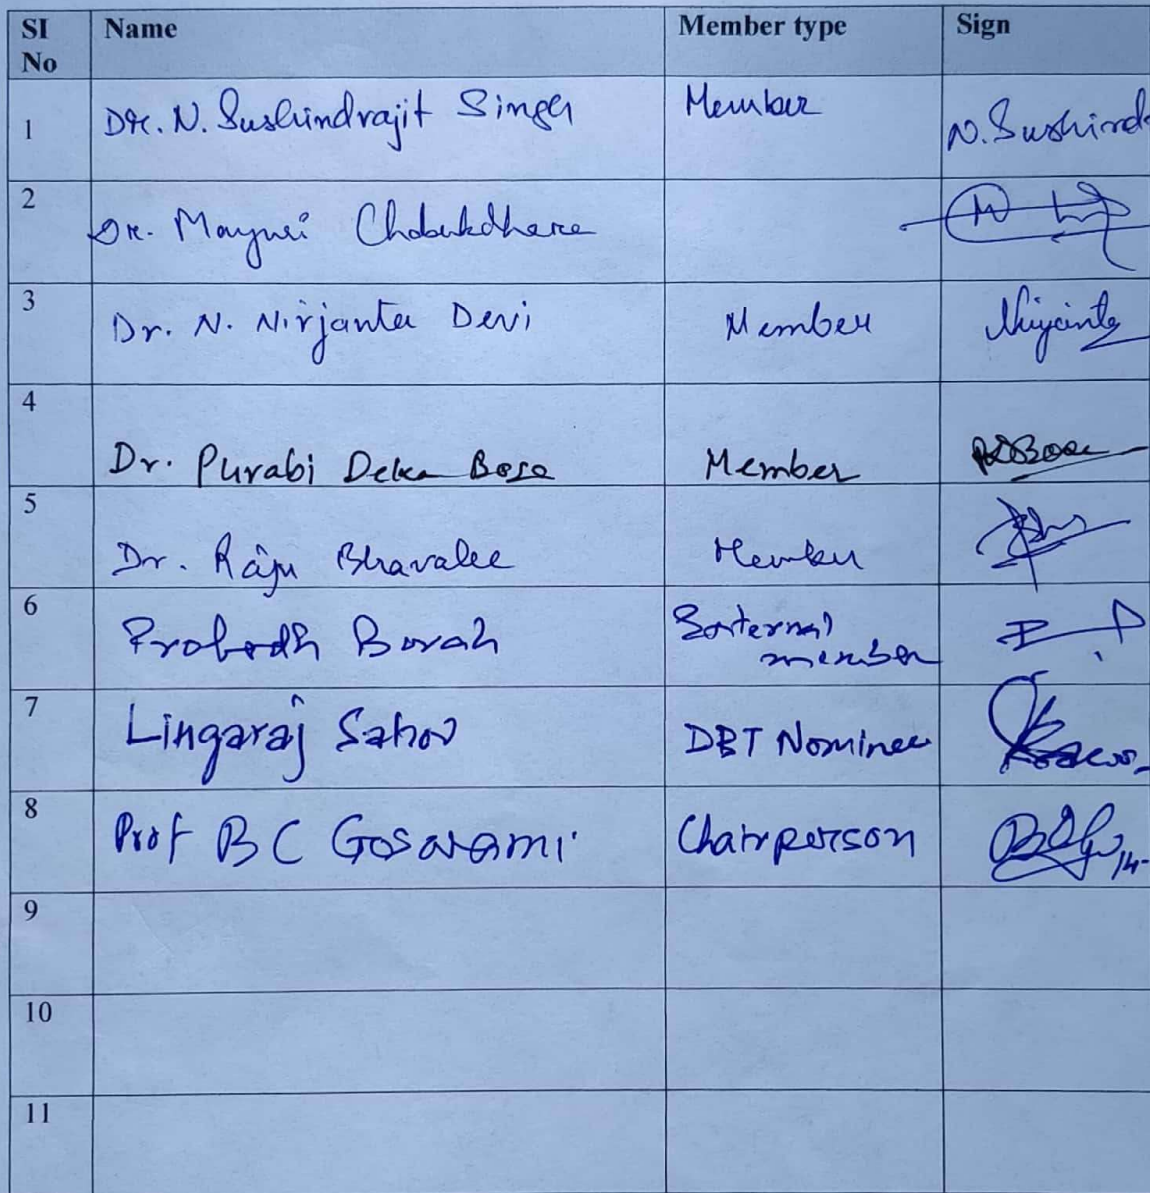 SI No Name Member type Sign
1 Dr. N. Sushindrajit Singh Member N. Sushind
2 Dr. Mayuri Chabukdhara
3 Dr. N. Nirjanta Devi Member Nirjanta
4 Dr. Purabi Deka Bose Member PDBose
5 Dr. Raju Bharalee Member
6 Probodh Borah External member
7 Lingaraj Sahoo DBT Nominee
8 Prof B C Goswami Chairperson
9
10
11